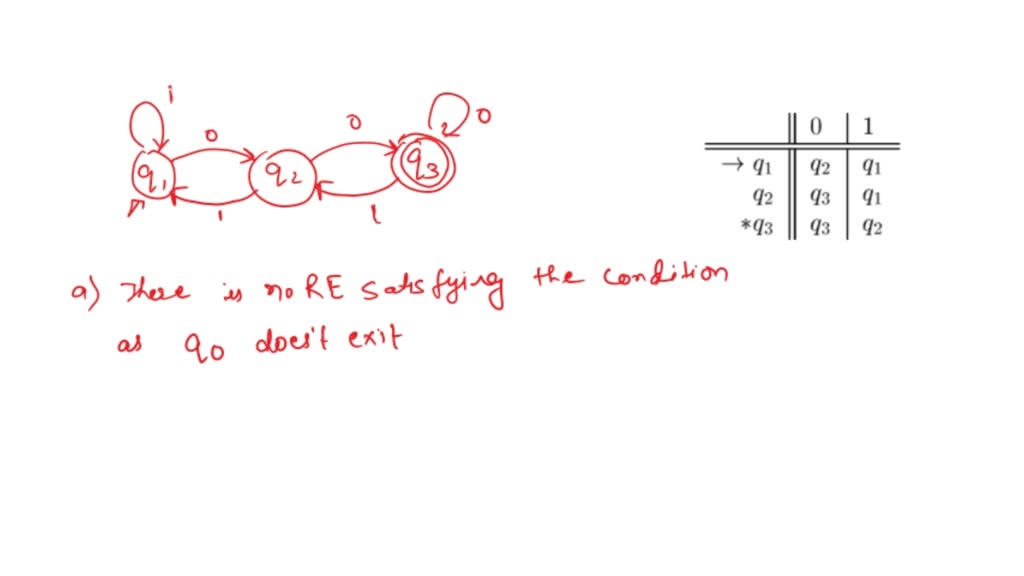 i
0
0
0
q1
q2
q3
1
1
0 1
→ q1 q2 q1
q2 q3 q1
*q3 q3 q2
a) There is no RE satisfying the condition
as q0 does't exit